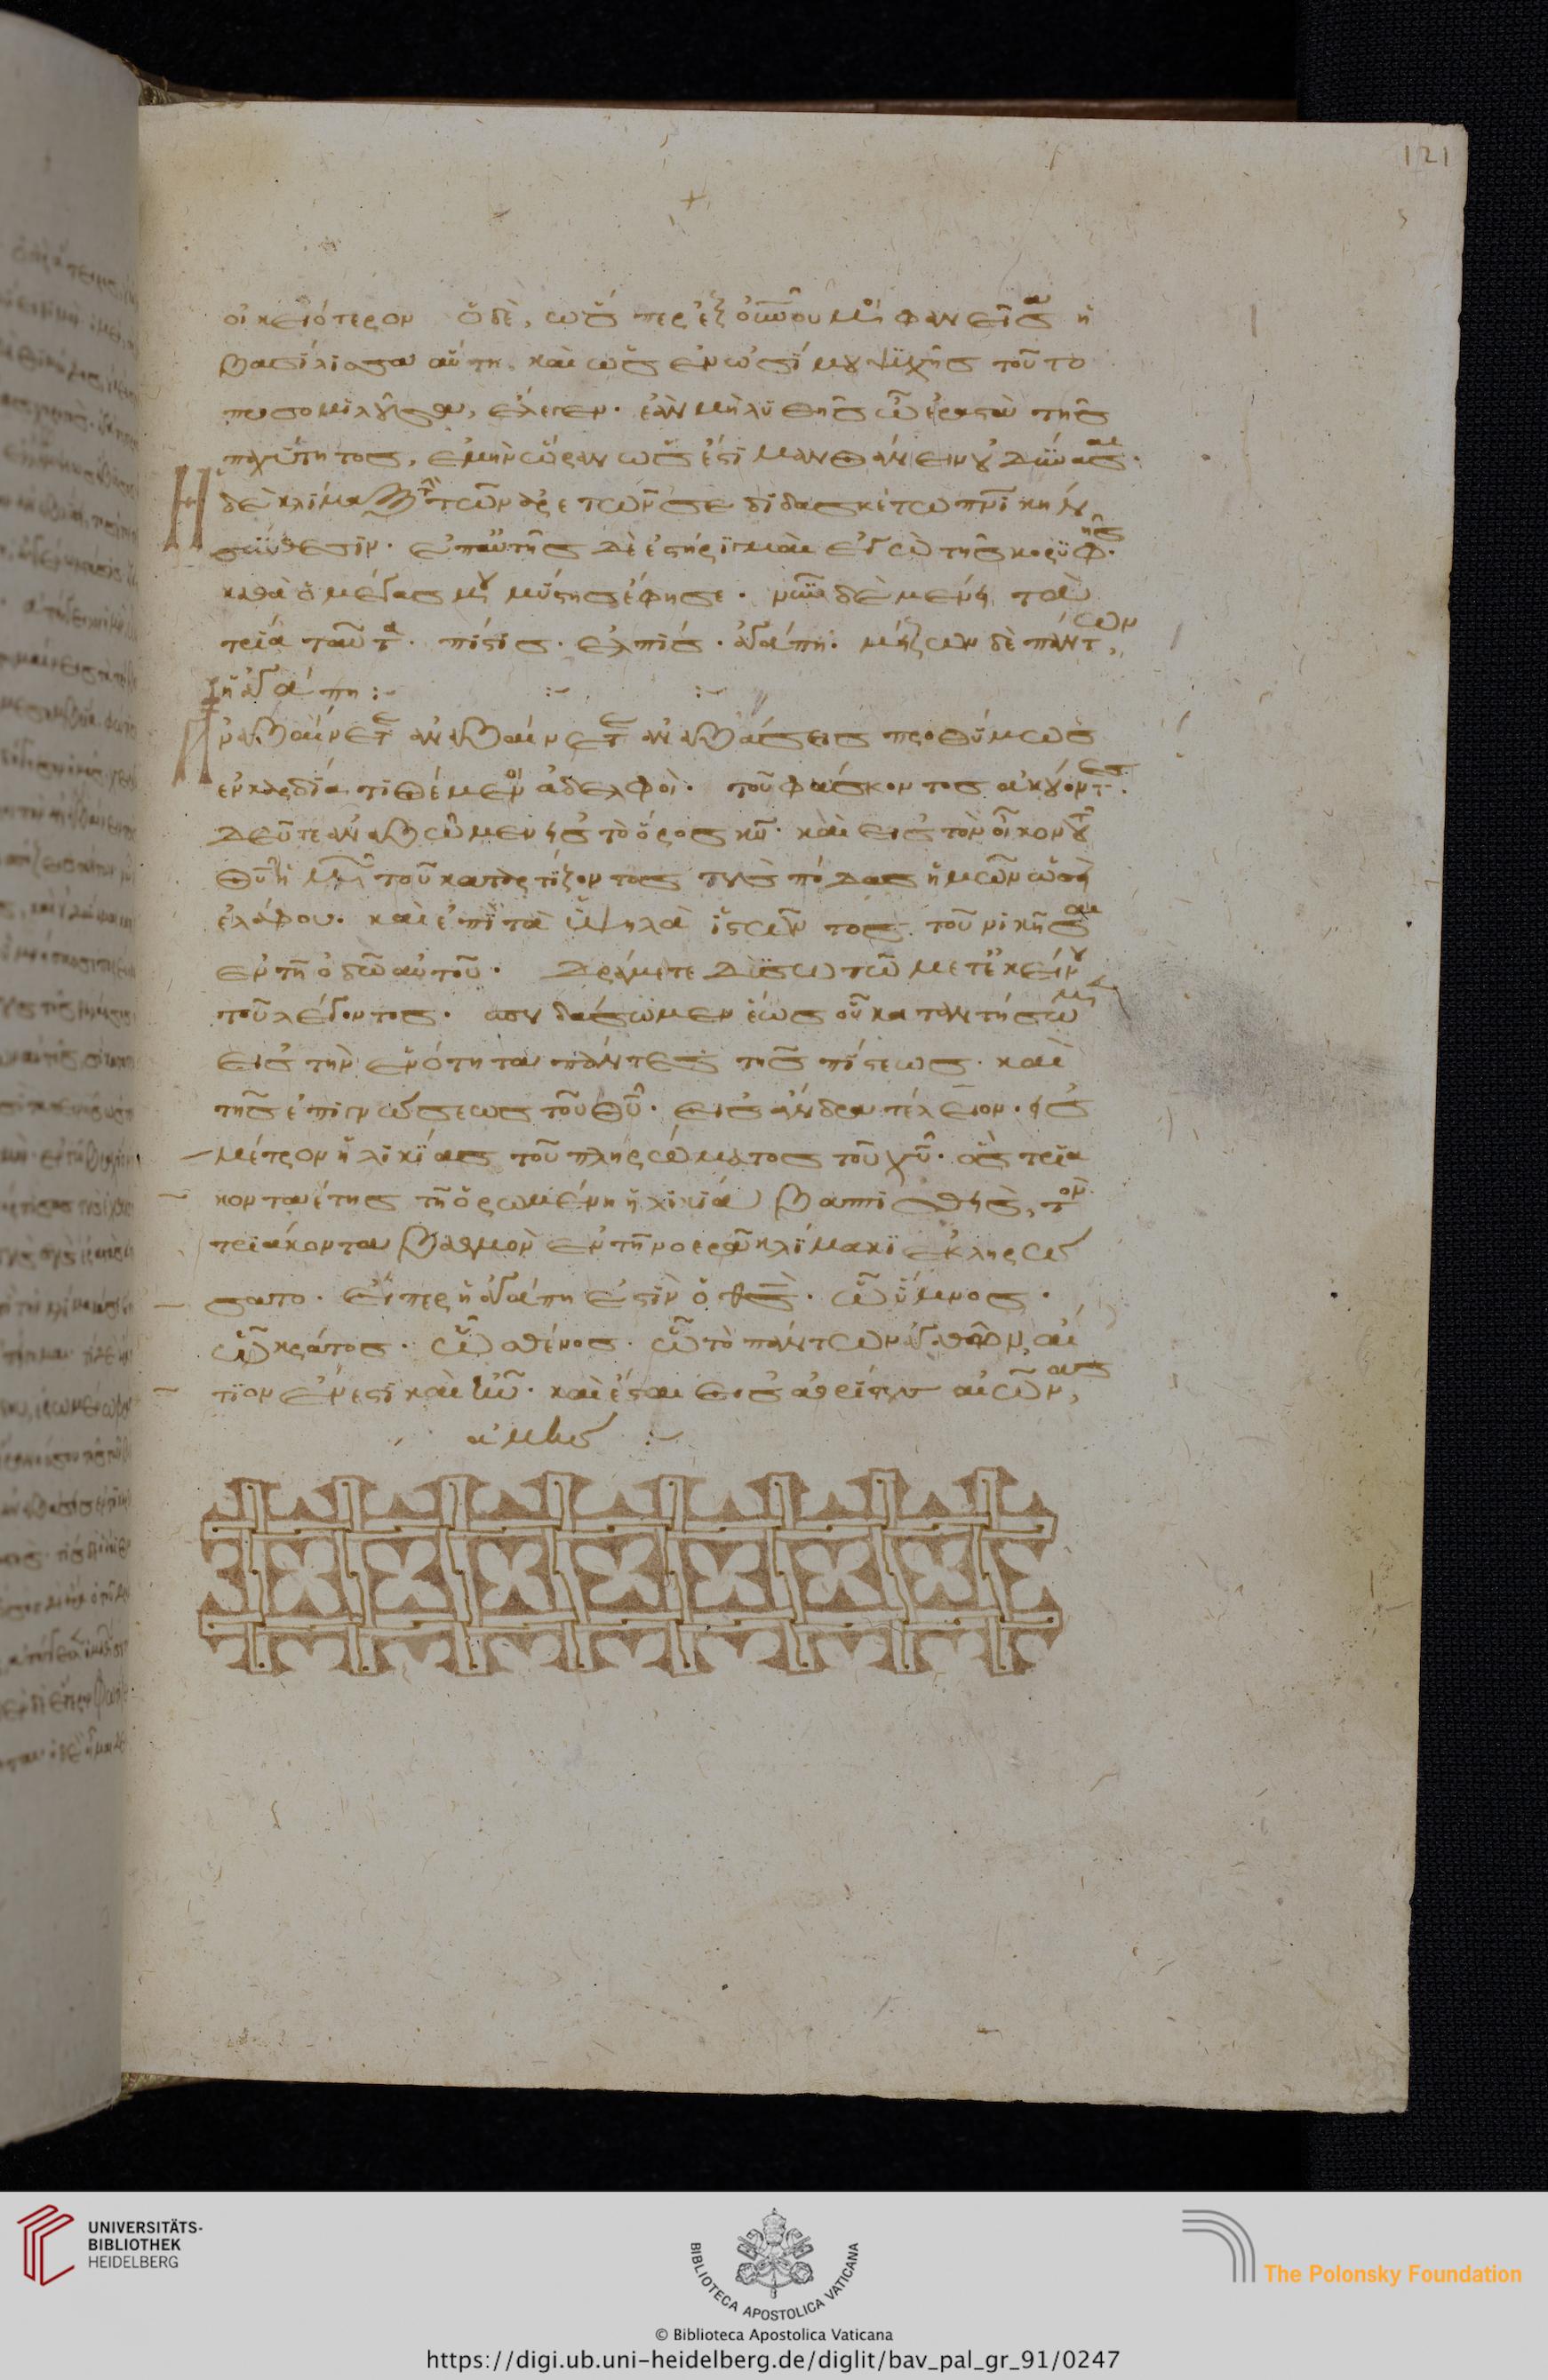 οἰκειότερον ὁ δὲ, ὥς περ ἐξ οὐνοῦ μοι φανεῖσα ἡ
βασίλισσα αὕτη. καὶ ὡς ἐν ὠσί μου ψυχῆς τοῦτο
προσομιλοῦσα, ἔλεγεν. ἐὰν μὴ λυθῆς ὦ ἐραστὰ τῆς
παχύτητος, ἐμὴν ὥραν ὡς ἐστὶ μανθάνειν οὐ δύνασαι.
Η δὲ κλίμαξ τῶν ἀρετῶν σε διδασκέτω πνικὴν
σύνθεσιν. ἐπαὐτῆς δὲ ἐστήριγμαι ἐγὼ τῆς κορυφῆς.
καθὰ ὁ μέγας μου μύστης ἔφησε. νυνὶ δὲ μένει τὰ
τρία ταῦτα. πίστις. ἐλπίς. ἀγάπη. μείζων δὲ πάντων,
ἡ ἀγάπη :~ :~ :~
Ἀναβαίνετε ἀναβαίνετε ἀναβάσεις προθύμως
ἐν καρδία τιθέμενοι ἀδελφοὶ. τοῦ φάσκοντος ἀκούοντες.
δεῦτε ἀναβῶμεν εἰς τὸ ὄρος κυ. καὶ εἰς τὸν οἶκον τοῦ
θυ ἡμῶν τοῦ καταρτίζοντος τοὺς πόδας ἡμῶν ὡσεὶ
ἐλάφου. καὶ ἐπὶ τὰ ὑψηλὰ ἱστῶντος. τοῦ νικῆσαι
ἐν τῆ ὁδῶ αὐτοῦ. δράμετε δέομαι μετ ἐκείνου
τοῦ λέγοντος. σπουδάσωμεν ἕως οὗ καταντήσωμεν
εἰς τὴν ἑνότητα πάντες τῆς πίστεως. καὶ
τῆς ἐπιγνώσεως τοῦ θυ. εἰς ἄνδρα τέλειον. εἰς
μέτρον ἡλικίας τοῦ πληρώματος τοῦ χυ. ὃς τρια
κονταέτης τῆ ὁρωμένη ἡλικία βαπτισθεὶς, τὸν
τριάκοντα βαθμὸν ἐν τῆ νοερᾶ κλίμακι ἐκληρώ
σατο. εἴπερ ἡ ἀγάπη ἐστὶν ὁ θς. ὧ ὕμνος.
ὧ κράτος. ὧ σθένος. ὧ τὸ πάντων ἀγαθῶν αἴ
τιον ἔνεστι καὶ ἦν. καὶ ἔσται εἰς ἀπείρους αἰῶνας,
ἀμήν :~
121
UNIVERSITÄTS-
BIBLIOTHEK
HEIDELBERG
BIBLIOTECA APOSTOLICA VATICANA
The Polonsky Foundation
© Biblioteca Apostolica Vaticana
https://digi.ub.uni-heidelberg.de/diglit/bav_pal_gr_91/0247